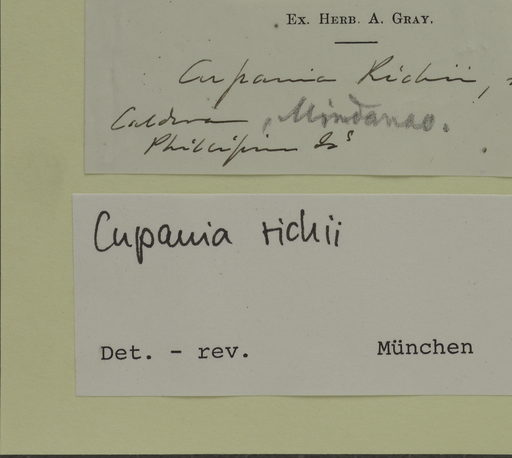 Ex. Herb. A. Gray.
Cupania Richii,
Caldera, Mindanao.
Philippine Is
Cupania richii
Det. - rev. München